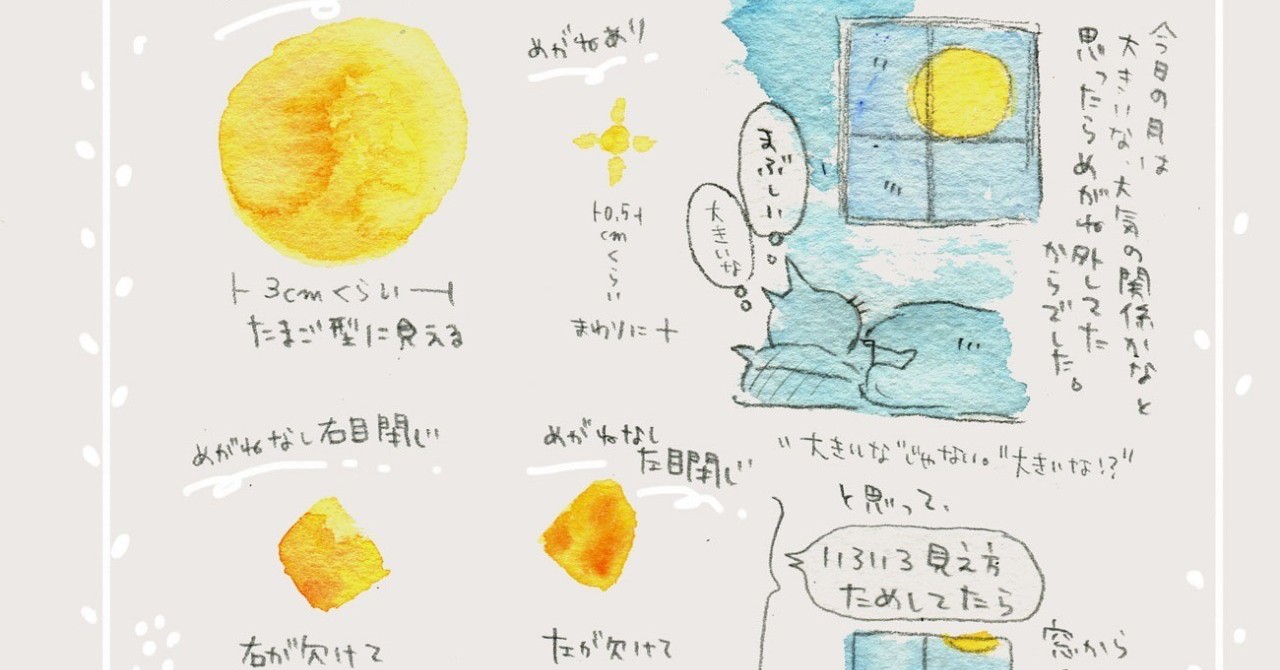 今日の月は
大きいな、大気の関係かなと
思ったらめがね外してた
からでした。
まぶしい
大きいな
めがねあり
0.5
cm
くらい
まわりに+
3cmくらい
たまご型に見える
"大きいな"じゃない。"大きいな!?"
と思って、
いろいろ見え方
ためしてたら
窓から
めがねなし左目閉じ
左が欠けて
めがねなし右目閉じ
右が欠けて